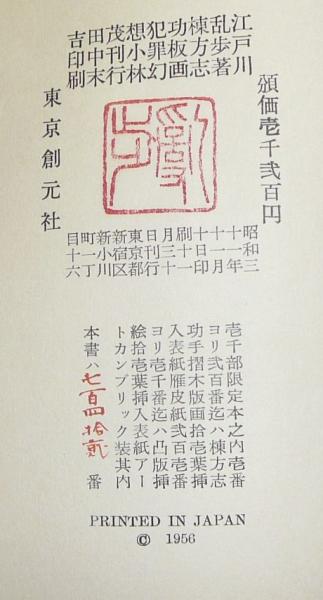 頒価壱千弐百円
江戸川
乱歩著
棟方志
功板画
犯罪幻
想小林
茂刊行
田中末
吉印刷
東京創元社
昭和三
十一年
十一月
十日印
刷十一
月三十
日刊行
東京都
新宿区
新小川
町一丁
目十六
壱千部限定本之内壱番
ヨリ弐百番迄ハ棟方志
功手摺木版画拾壱葉挿
入表紙雁皮紙弐百壱番
ヨリ壱千番迄ハ凸版挿
絵拾壱葉挿入表紙アー
トカンブリック装其内
本書ハ七百四拾貮番
PRINTED IN JAPAN
© 1956